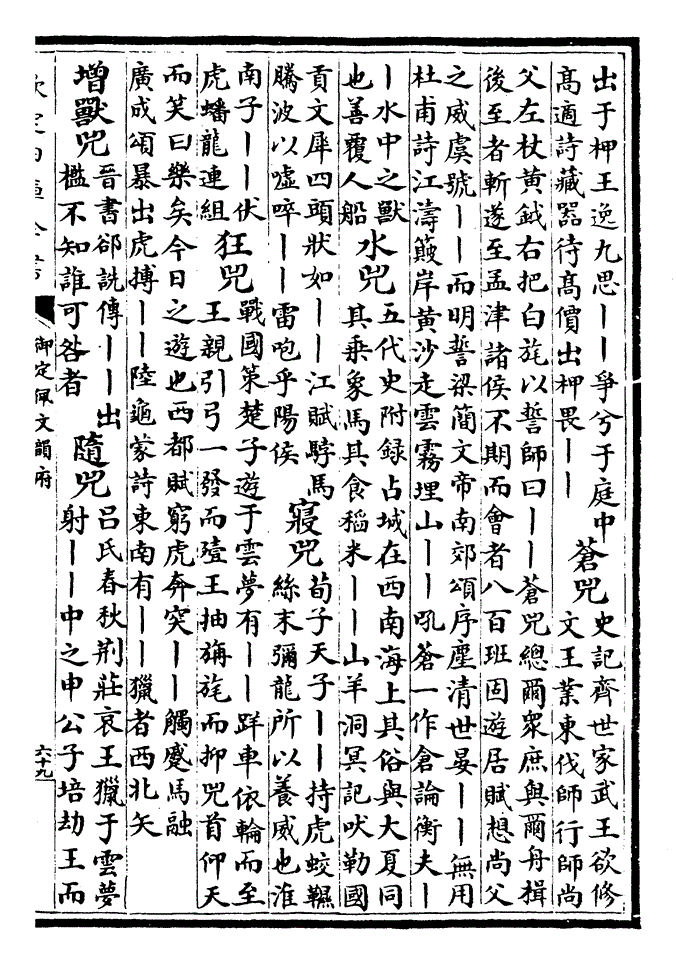 出于柙王逸九思丨丨爭兮于庭中
高適詩藏器待高價出柙畏丨丨
蒼兕
史記齊世家武王欲修
文王業東伐師行師尚
父左杖黃鉞右把白旄以誓師曰丨丨蒼兕總爾衆庶與爾舟楫
後至者斬遂至孟津諸侯不期而會者八百班固遊居賦想尚父
之威虞號丨丨而明誓梁簡文帝南郊頌序塵清世晏丨丨無用
杜甫詩江濤簸岸黃沙走雲霧埋山丨丨吼蒼一作倉論衡夫丨
丨水中之獸
也善覆人船
水兕
五代史附録占城在西南海上其俗與大夏同
其乗象馬其食稻米丨丨山羊洞冥記吠勒國
貢文犀四頭狀如丨丨江賦馬
騰波以噓啐丨丨雷咆乎陽侯
寢兕
荀子天子丨丨持虎蛟韅
絲末彌龍所以養威也淮
南子丨丨伏
虎蟠龍連組
狂兕
戰國策楚子遊于雲夢有丨丨車依輪而至
王親引弓一發而殪王抽旃旄而抑兕首仰天
而笑曰樂矣今日之遊也西都賦窮虎奔突丨丨觸蹙馬融
廣成頌暴出虎搏丨丨陸龜蒙詩東南有丨丨獵者西北矢
增獸兕
晉書郤詵傳丨丨出
檻不知誰可咎者
隨兕
吕氏春秋荊莊哀王獵于雲夢
射丨丨中之申公子培劫王而
欽定四庫全書
御定佩文韻府
六十九